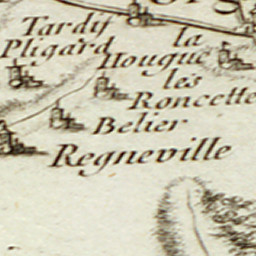 Tardif
la
Pligard
Houque
les
Roncette
Belier
Regneville